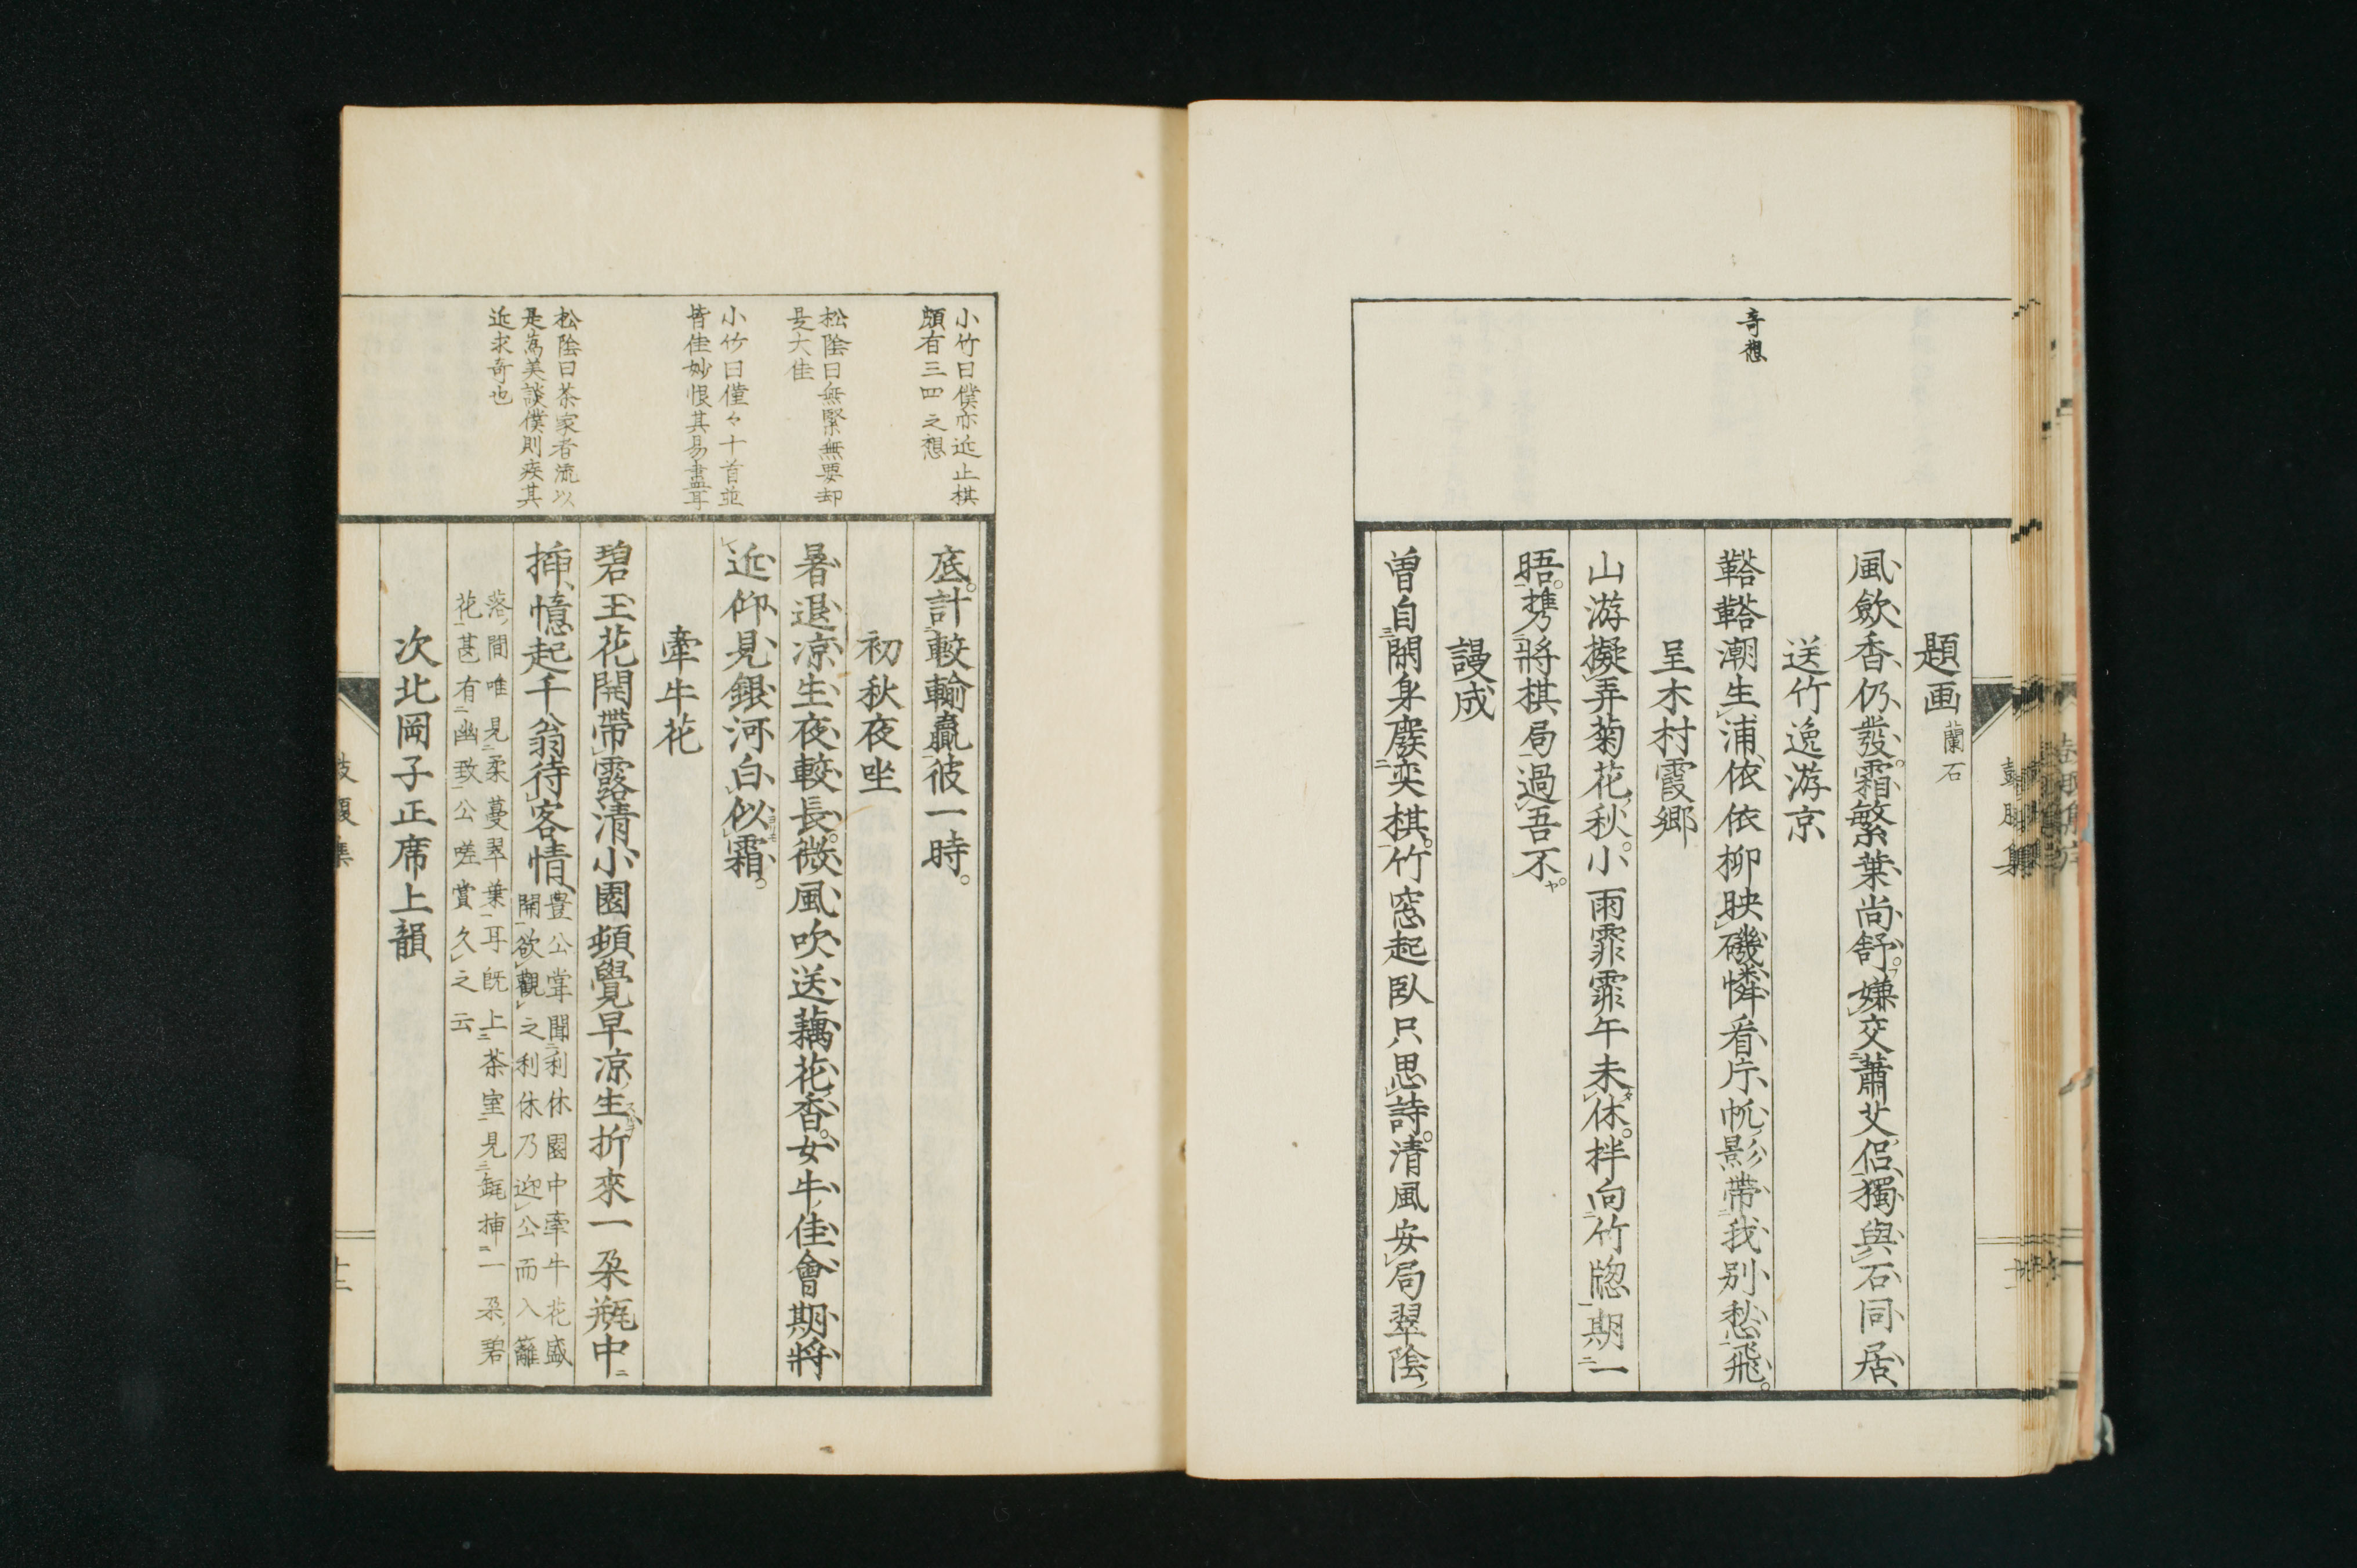 題画 蘭石
風歛香仍發霜繁葉尚舒嫌交蕭艾侶獨與石同居
送竹逸游京
鞳鞳潮生浦依依柳映磯憐看片帆影帶我別愁飛
呈木村霞郷
山游擬弄菊花秋小雨霏霏午未休拌向竹牎期一
晤携將棋局過吾不
謾成
曽自關身廢奕棋竹窓起臥只思詩清風安局翠陰
奇想
底計較輸贏彼一時
初秋夜坐
暑退凉生夜較長微風吹送藕花香女牛佳會期將
近仰見銀河白似霜
牽牛花
碧玉花開帶露清小園頓覺早凉生折來一朶瓶中
挿憶起千翁待客情
豊公甞聞利休園中牽牛花盛
開欲觀之利休乃迎公而入籬
落間唯見柔蔓翠葉耳既上茶室見瓶挿一朶碧
花甚有幽致公嗟賞久之云
次北岡子正席上韻
小竹曰僕亦近止棋
頗有三四之想
松陰曰無緊無要却
是大佳
小竹曰僅々十首並
皆佳妙恨其易盡耳
松陰曰茶家者流以
是為美談僕則疾其
近求奇也